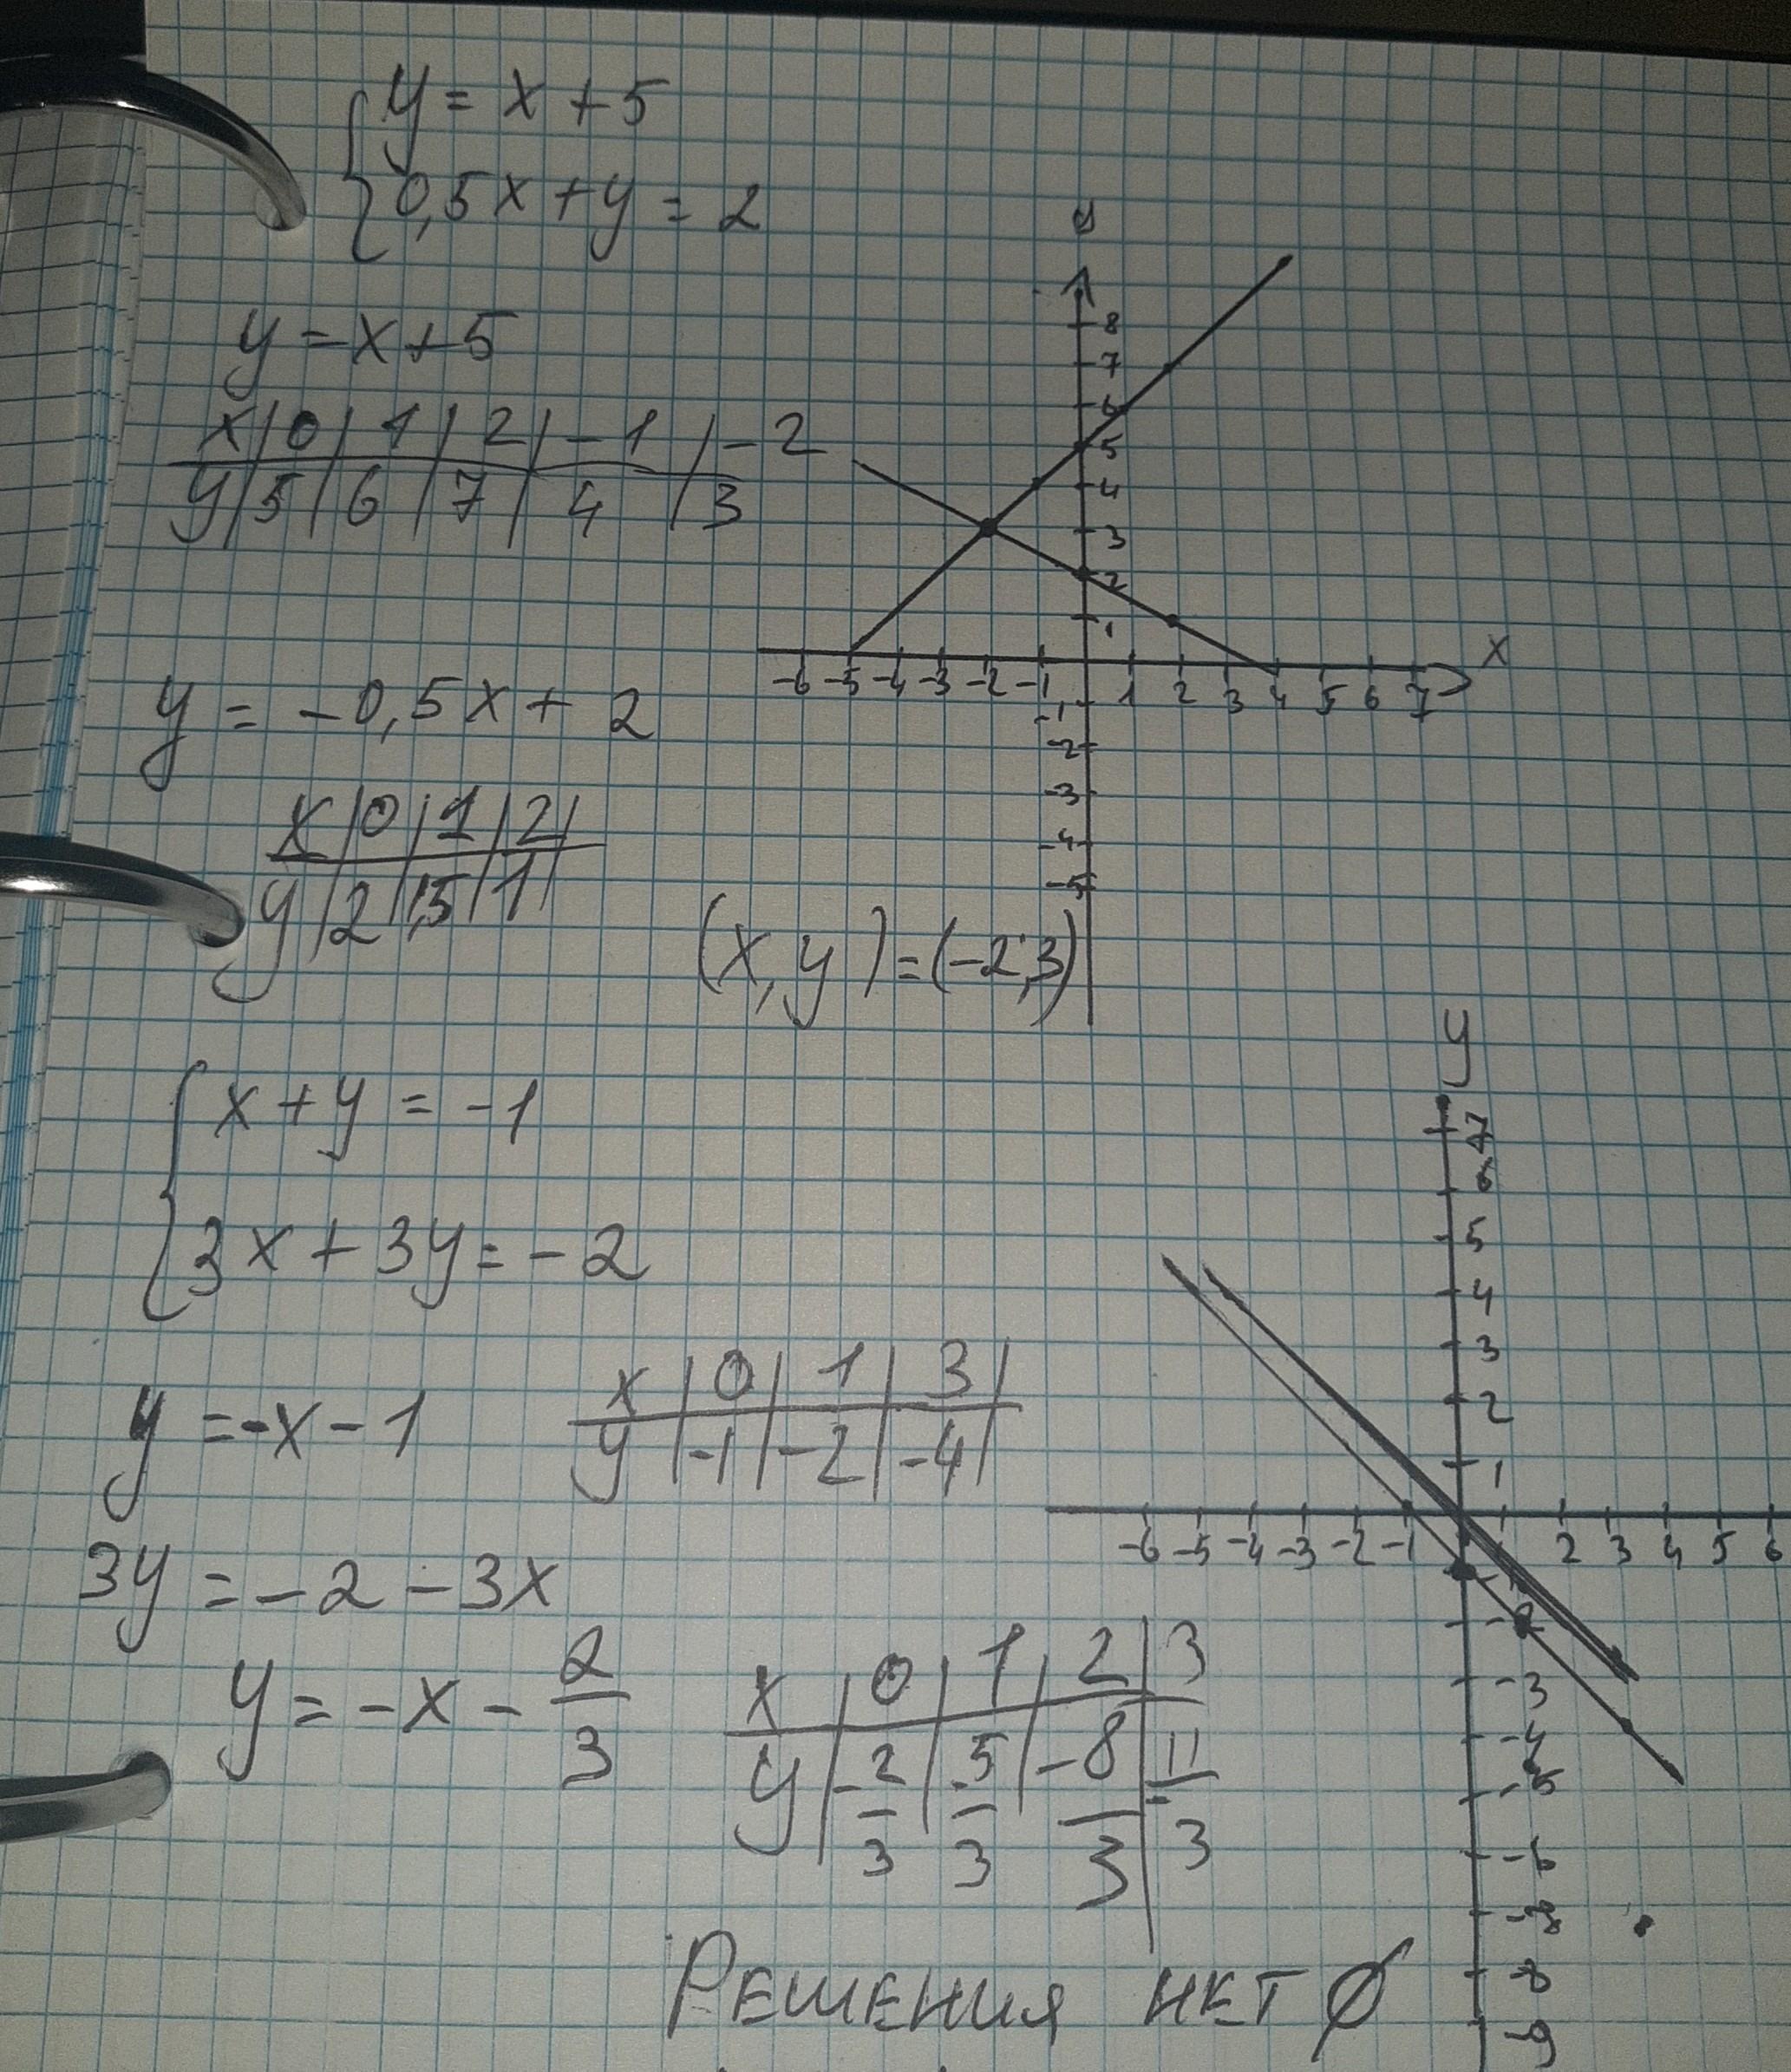 y = x + 5
0,5x + y = 2
y = x + 5
x | 0 | 1 | 2 | -1 | -2
y | 5 | 6 | 7 | 4 | 3
y
8
7
6
5
4
3
2
1
-6 -5 -4 -3 -2 -1 1 2 3 4 5 6 7 x
-1
-2
-3
-4
-5
y = -0,5x + 2
x | 0 | 1 | 2 |
y | 2 | 1,5 | 1 |
(x, y) = (-2;3)
x + y = -1
3x + 3y = -2
y = -x - 1
x | 0 | 1 | 3 |
y | -1 | -2 | -4 |
3y = -2 - 3x
y = -x - 2/3
x | 0 | 1 | 2 | 3
y | -2/3 | -5/3 | -8/3 | -11/3
y
7
6
5
4
3
2
1
-6 -5 -4 -3 -2 -1 2 3 4 5 6
-2
-3
-4
-5
-6
-8
-9
Решения нет Ø